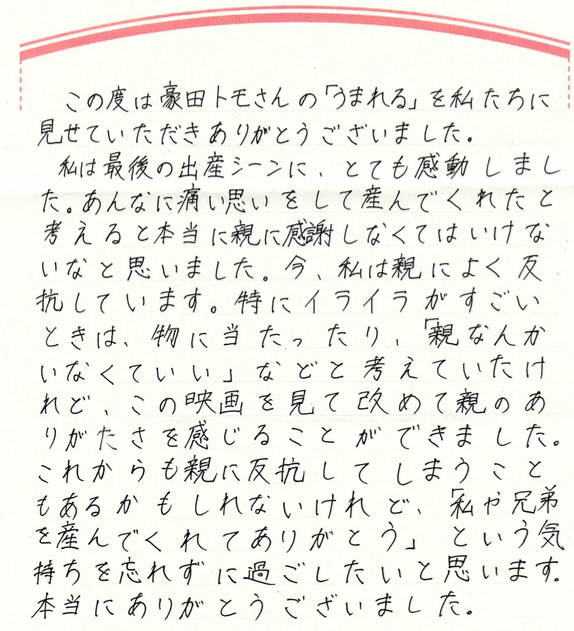 この度は豪田トモさんの「うまれる」を私たちに
見せていただきありがとうございました。
私は最後の出産シーンに、とても感動しまし
た。あんなに痛い思いをして産んでくれたと
考えると本当に親に感謝しなくてはいけな
いなと思いました。今、私は親によく反
抗しています。特にイライラがすごい
ときは、物に当たったり、「親なんか
いなくていい」などと考えていたけ
れど、この映画を見て改めて親のあ
りがたさを感じることができました。
これからも親に反抗してしまうこと
もあるかもしれないけれど、「私や兄弟
を産んでくれてありがとう」という気
持ちを忘れずに過ごしたいと思います。
本当にありがとうございました。